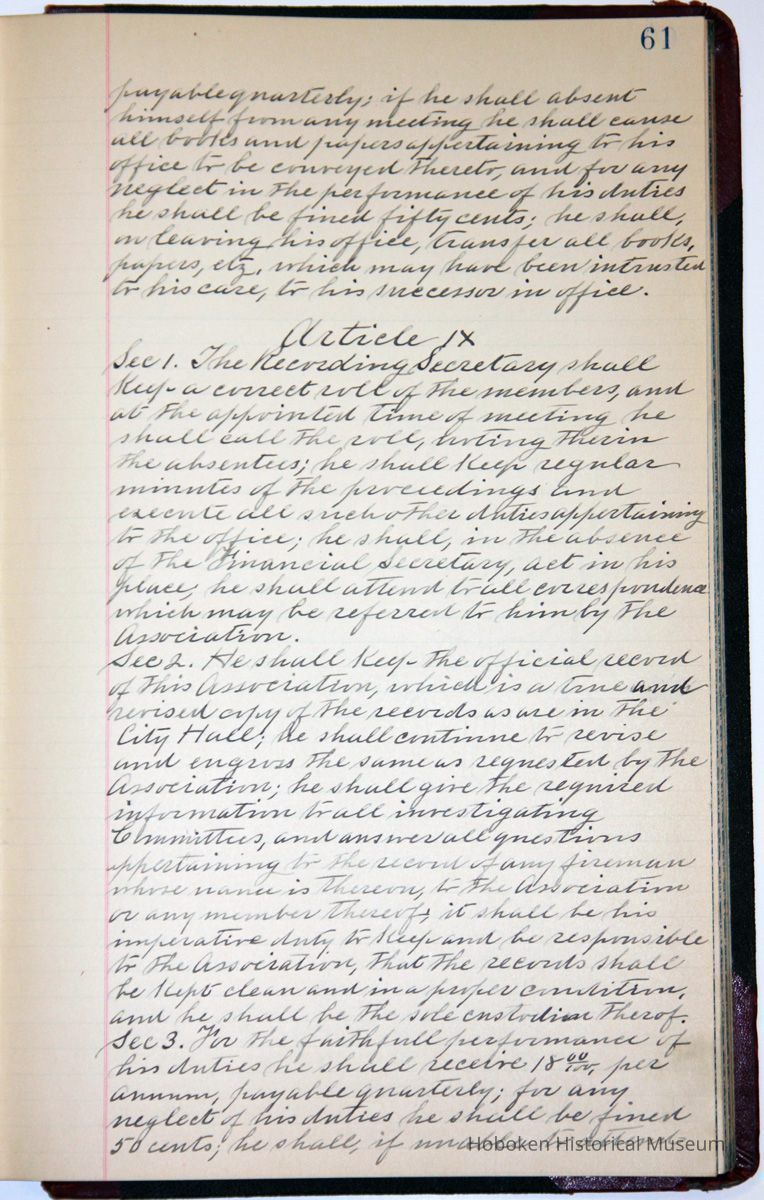 61
payable quarterly; if he shall absent
himself from any meeting he shall cause
all books and papers appertaining to his
office to be conveyed thereto, and for any
neglect in the performance of his duties
he shall be fined fifty cents; he shall,
on leaving his office, transfer all books,
papers, etz, which may have been intrusted
to his care, to his successor in office.
Article IX
Sec 1. The Recording Secretary shall
Keep a correct roll of the members, and
at the appointed time of meeting he
shall call the roll, noting therin
the absentees; he shall Keep regular
minutes of the proceedings and
execute all such other duties appertaining
to the office; he shall, in the absence
of the Financial Secretary, act in his
place; he shall attend to all correspondence
which may be referred to him by the
Association.
Sec 2. He shall Keep the official record
of this Association, which is a true and
revised copy of the records as are in the
City Hall; he shall continue to revise
and engross the same as requested by the
Association; he shall give the required
information to all investigating
Committees, and answer all questions
appertaining to the record of any fireman
whose name is thereon, to the Association
or any member thereof; it shall be his
imperative duty to Keep and be responsible
to the Association, that the records shall
be Kept clean and in a proper condition,
and he shall be the sole custodian therof.
Sec 3. For the faithfull performance of
his duties he shall receive 18 00/100, per
annum, payable quarterly; for any
neglect of his duties he shall be fined
50 cents; he shall, if
Hoboken Historical Museum